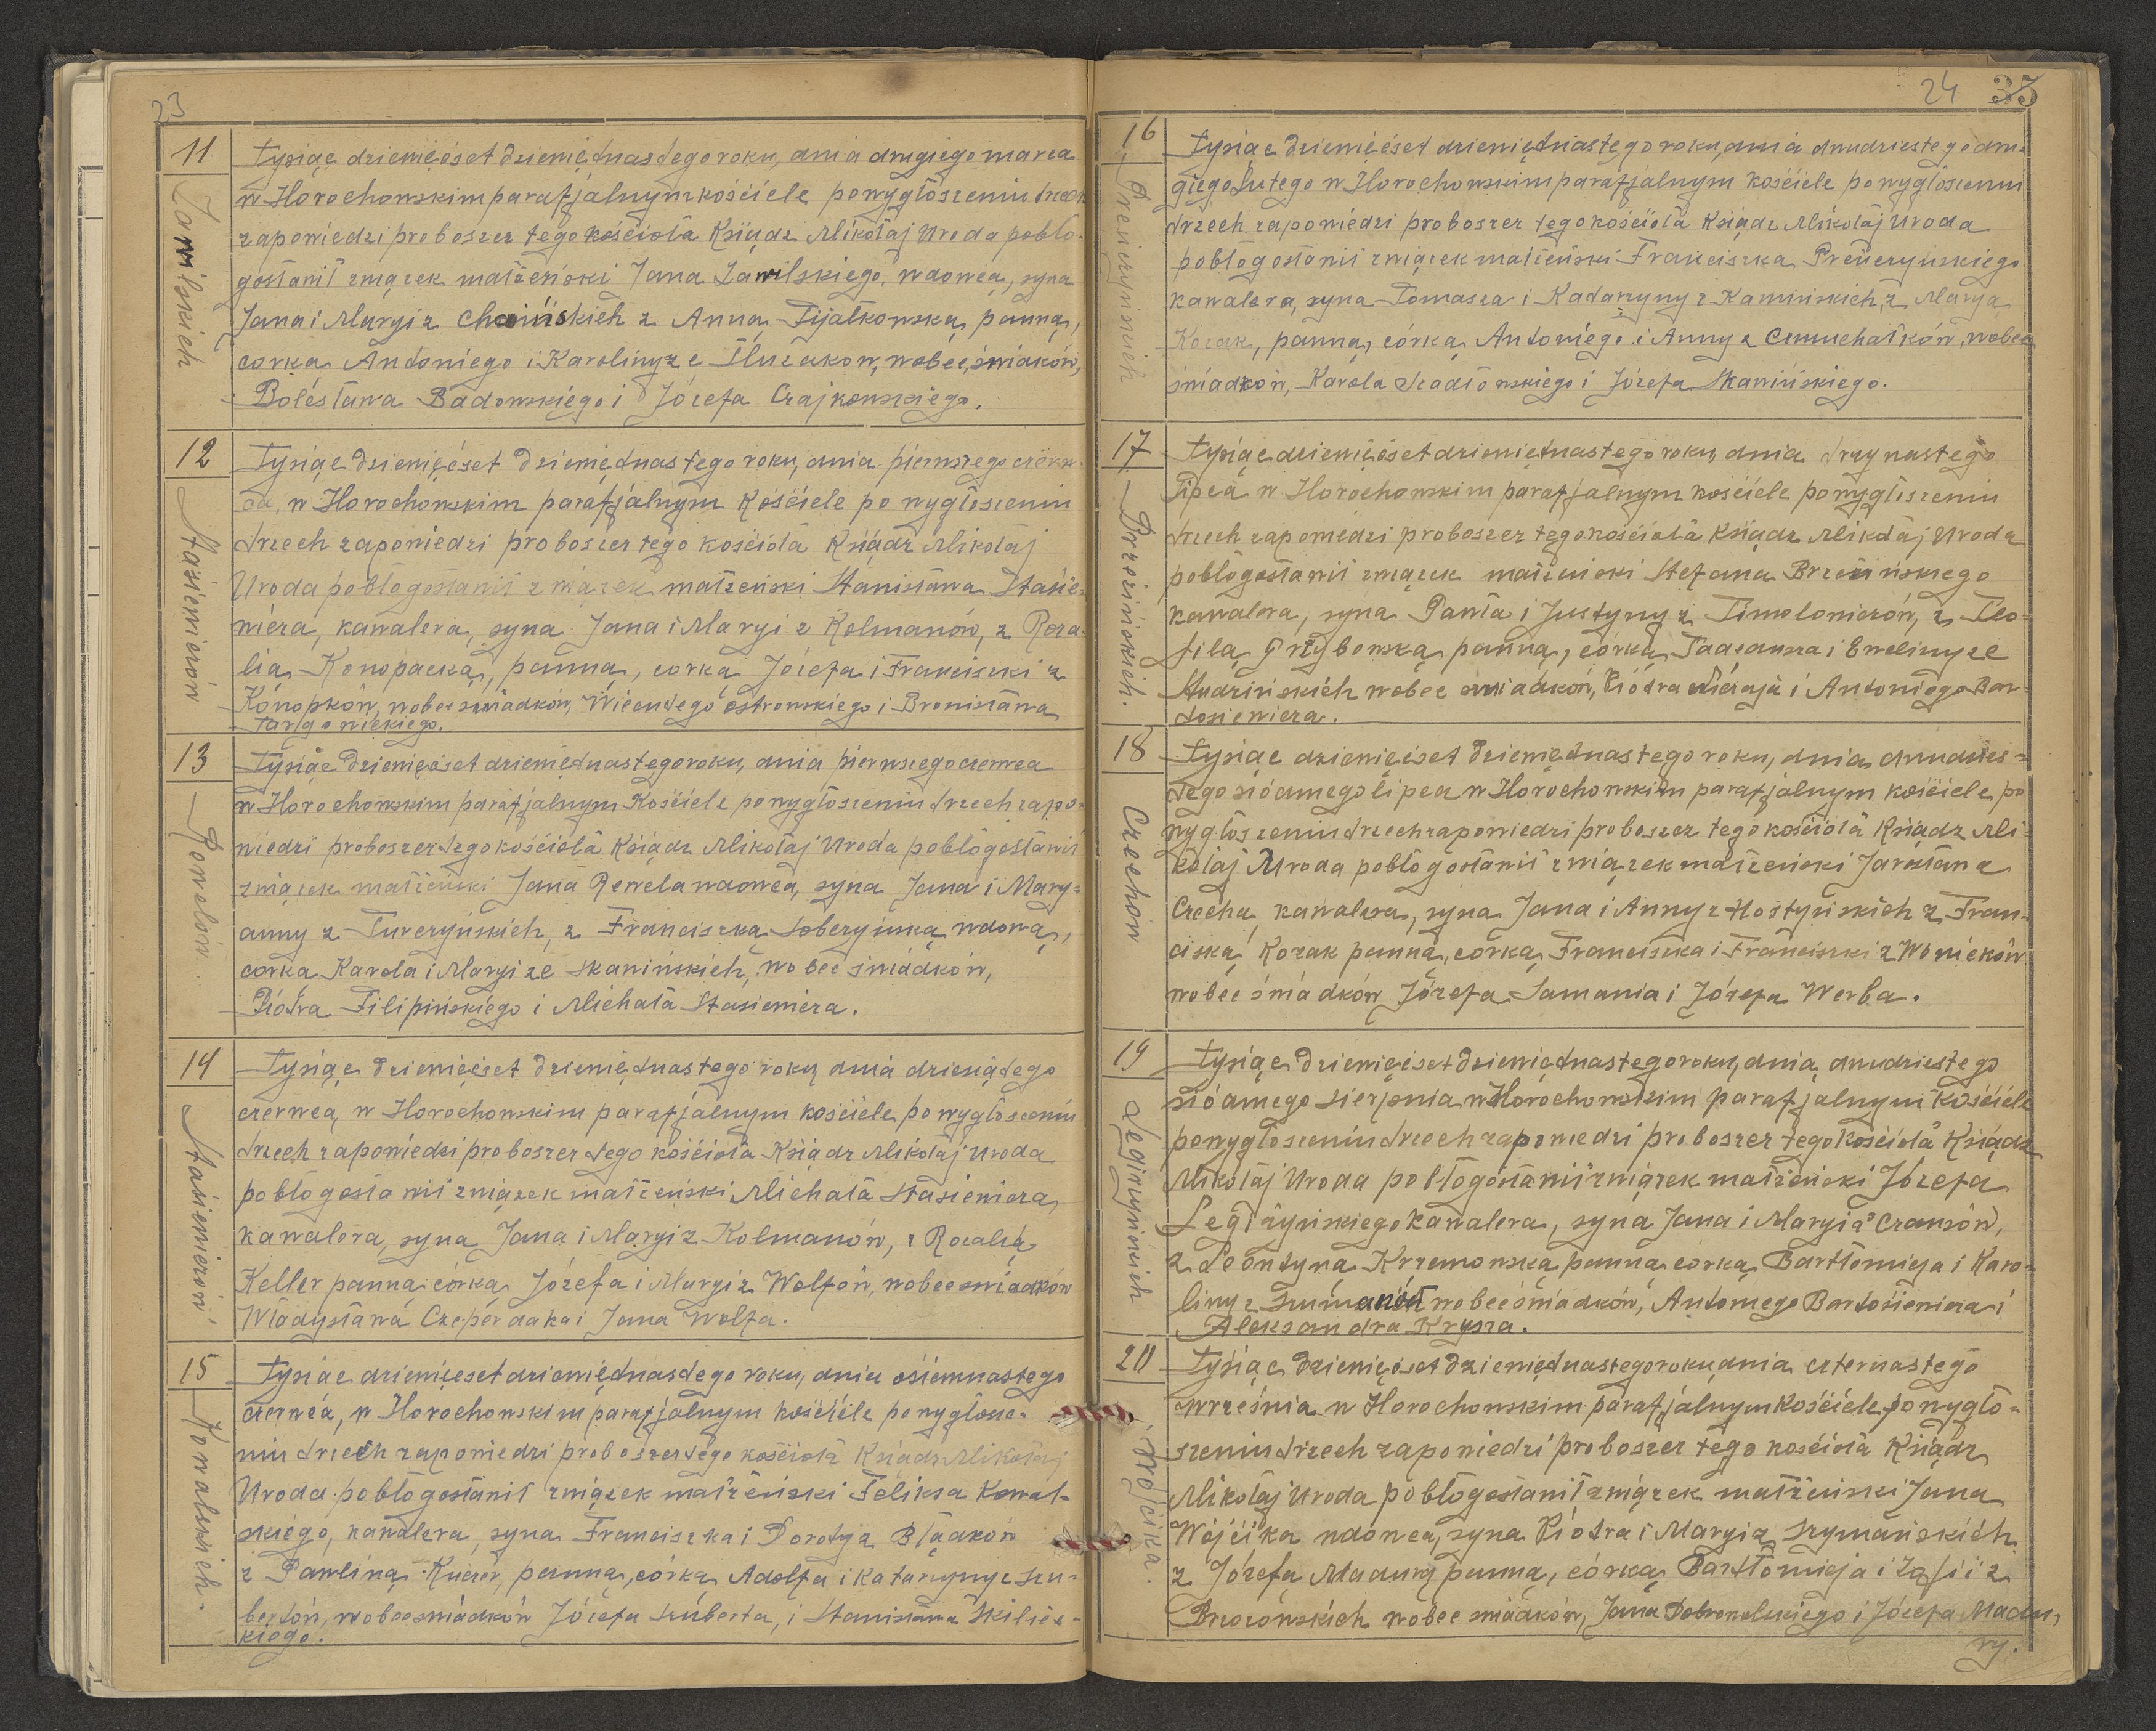 23
11
Zawilskich
Tysiąc dziewięćset dziewiętnastego roku, dnia drugiego marca
w Horochowskim parafjalnym kościele po wygłoszeniu trzech
zapowiedzi proboszcz tego kościoła Ksiądz Mikołaj Uroda pobło-
gosławił związek małżeński Jana Zawilskiego, wdowca, syna
Jana i Maryi z Choińskich z Anną Fijałkowską, panną,
corką Antoniego i Karoliny ze Śluzakow, wobec, świaków,
Bolesława Badowskiego i Józefa Czajkowskiego.
12
Stasiewiczów
Tysiąc dziewięćset dziewiętnastego roku, dnia pierwszego czerw-
ca, w Horochowskim parafjalnym Kościele po wygłoszeniu
trzech zapowiedzi proboszcz tego kościoła Ksiądz Mikołaj
Uroda pobłogosławił związek małżeński Stanisława Stasie-
wicza, kawalera, syna Jana i Maryi z Kolmanów, z Roza-
lią Konopacką, panną, corką Józefa i Franciszki z
Konopków, wobec swiadków, Wicentego Ostrowskiego i Bronisława
Targowickiego.
13
Rewelów.
Tysiąc dziewięćset dziewiętnastego roku, dnia pierwszego czerwca
w Horochowskim parafjalnym Kościele po wygłoszeniu trzech zapo-
wiedzi proboszcz tego kościoła Ksiądz Mikołaj Uroda pobłogosławił
związek małżeński Jana Rewela wdowca, syna Jana i Mary-
anny z Tuczyńskich, z Franciszką Soberyńską wdową,
corką Karola i Maryi ze Skawińskich, wobec świadków,
Piotra Filipińskiego i Michała Stasiewicza.
14
Stasiewiczów.
Tysiąc dziewięćset dziewiętnastego roku dnia dziesiątego
czerwca, w Horochowskim parafjalnym kościele po wygłoszeniu
trzech zapowiedzi proboszcz tego kościoła Ksiądz Mikołaj Uroda
pobłogosławił związek małżeński Michała Stasiewicza
kawalera, syna Jana i Maryi z Kolmanów, z Rozalią
Keller panną córką Józefa i Maryi z Wolfów, wobec swiadków
Władysława Czeperdaka i Jana Wolfa.
15
Kowalskich.
Tysiąc dziewięćset dziewiętnastego roku, dnia ośiemnastego
czerwca, w Horochowskim parafjalnym kościele po wygłosze-
niu trzech zapowiedzi proboszcz tego kościoła Ksiądz Mikołaj
Uroda pobłogosławił związek małżeński Feliksa Kowal-
skiego, kawalera, syna Franciszka i Doroty z Błądków
z Pawliną Kucer, panną, córką Adolfa i Katarzyny z Szu-
bertów, wobec swiadków Józefa Szuberta, i Stanisława Skilic-
kiego.
24 35
16
Tysiąc dziewięćset dziewiętnastego roku, dnia dwudziestego dru-
giego Lutego w Horochowskim parafjalnym kościele po wygłoszeniu
trzech zapowiedzi proboszcz tego kościoła Ksiądz Mikołaj Uroda
pobłogosławił związek małżeński Franciszka
kawalera, syna Tomasza i Katarzyny z Kamińskich, z Maryą
Kozak, panną, córką Antoniego i Anny z Cmuchałków, wobec
świadków, Karola Szadłowskiego i Józefa Skawińskiego.
17
Brzezińskich.
Tysiąc dziewięćset dziewiętnastego roku, dnia trzynastego
lipca w Horochowskim parafjalnym kościele po wygłoszeniu
trzech zapowiedzi proboszcz tego kościoła Ksiądz Mikołaj Uroda
pobłogosławił związek małżeński Stefana Brzezińskiego
kawalera, syna Pawła i Justyny z Timołowiczów, z Teo-
filą Grzybowską panną, córką Tadeusza i Eweliny ze
Studzińskich wobec swiadków, Piotra i Antoniego Bar-
tosiewicza.
18
Czechów
Tysiąc dziewięćset dziewiętnastego roku, dnia dwudzies-
tego siódmego lipca w Horochowskim parafjalnym kościele po
wygłoszeniu trzech zapowiedzi proboszcz tego kościoła Ksiądz Mi-
kołaj Uroda pobłogosławił związek małżeński Jarosława
Czecha, kawalera, syna Jana i Anny z Hostyńskich z Fran-
ciszką Kozak panną, corką Franciszka i Franciszki z Woničków
wobec świadków Józefa Samania i Józefa Werba.
19
Legiżyńskich
Tysiąc dziewięćset dziewiętnastego roku, dnia, dwudziestego
siódmego sierpnia w Horochowskim parafjalnym kościele
po wygłoszeniu trzech zapowiedzi proboszcz tego kościoła Ksiądz
Mikołaj Uroda pobłogosławił związek małżeński Józefa
Legiżyńskiego kawalera, syna Jana i Maryi z Crausów,
z Leontyną Krzemowską panną corką Bartłomieja i Karo-
liny z Szumanów wobec świadków, Antoniego Bartosiewicza i
Aleksandra Krysza.
20
Wójcika.
Tysiąc dziewięćset dziewiętnastego roku, dnia czternastego
września w Horochowskim parafjalnym kościele po wygło-
szeniu trzech zapowiedzi proboszcz tego kościoła Ksiądz
Mikołaj Uroda pobłogosławił związek małżeński Jana
Wójcika wdowca, syna Piotra i Maryi z Szymańskich
z Józefą Madurą panną, córką Bartłomieja i Zofii z
Brzozowskich wobec świadków, Jana Dobrowolskiego i Józefa Madu,
ry.